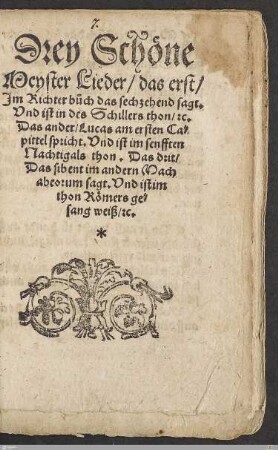 7.
Drey Schöne
Meyster Lieder/ das erst/
Im Richter büch das sechzehend sagt.
Vnd ist in des Schillers thon/ ꝛc.
Das ander/ Lucas am ersten Ca⸗
pittel spricht. Vnd ist im senfften
Nachtigals thon. Das drit/
Das sibent im andern Mach
abeorum sagt. Vnd ist im
thon Römers ge⸗
sang weiß/ ꝛc.
*